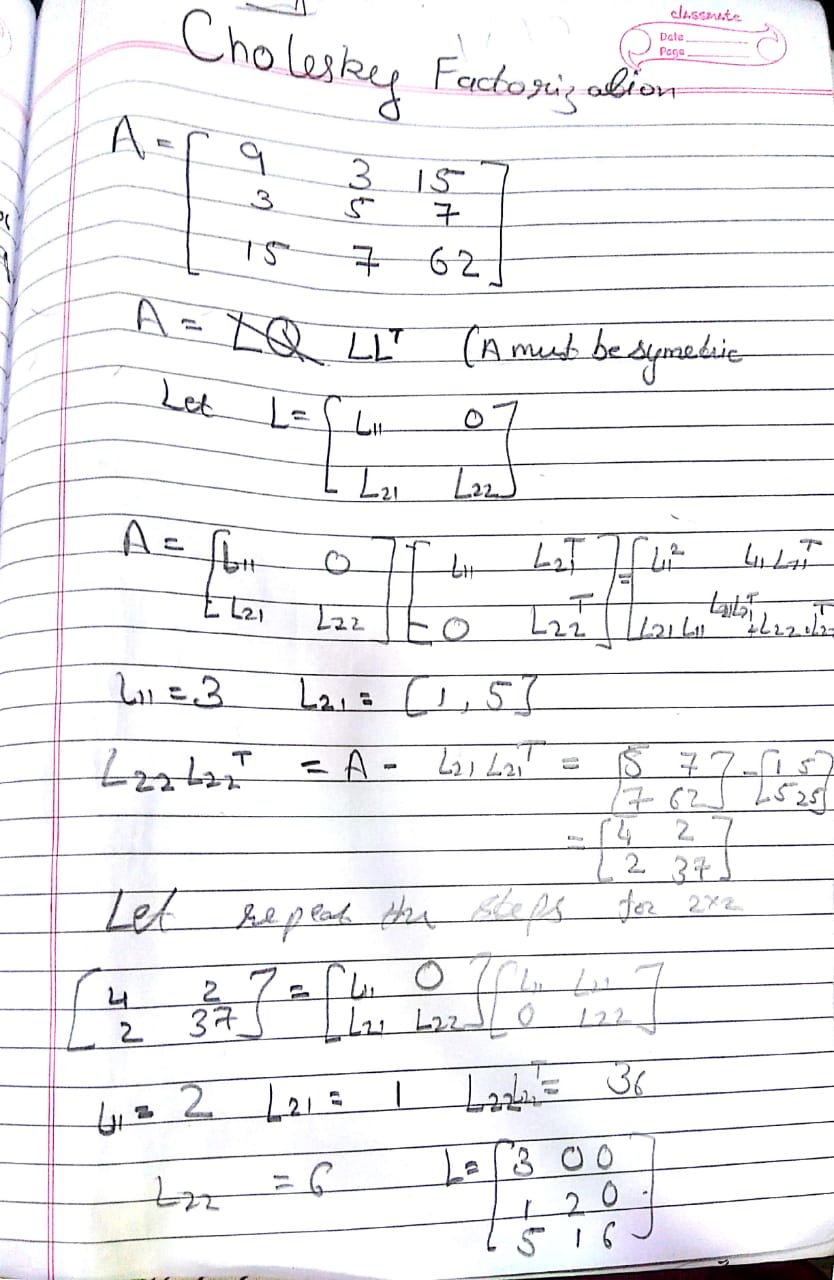 classmate
Date
Page
Choleskey Factorization
A = [ 9 3 15
3 5 7
15 7 62 ]
A = LQ LLᵀ (A must be symetric
Let L = [ L11 0
L21 L22 ]
A = [ L11 0 ] [ L11 L21ᵀ ] = [ L11² L11 L21ᵀ
[ L21 L22 ] [ 0 L22ᵀ ] [ L21 L11 L21L21ᵀ + L22 . L22
L11 = 3 L21 = [1, 5]
L22 L22ᵀ = A - L21 L21ᵀ = [ 5 7 ] - [ 1 5 ]
[ 7 62 ] [ 5 25 ]
= [ 4 2
2 37 ]
Let repeat the steps for 2×2
[ 4 2 ] = [ L11 0 ] [ L11 L21 ]
[ 2 37 ] [ L21 L22 ] [ 0 L22 ]
L11 = 2 L21 = 1 L22L22ᵀ = 36
L22 = 6 L = [ 3 0 0
1 2 0
5 1 6 ]